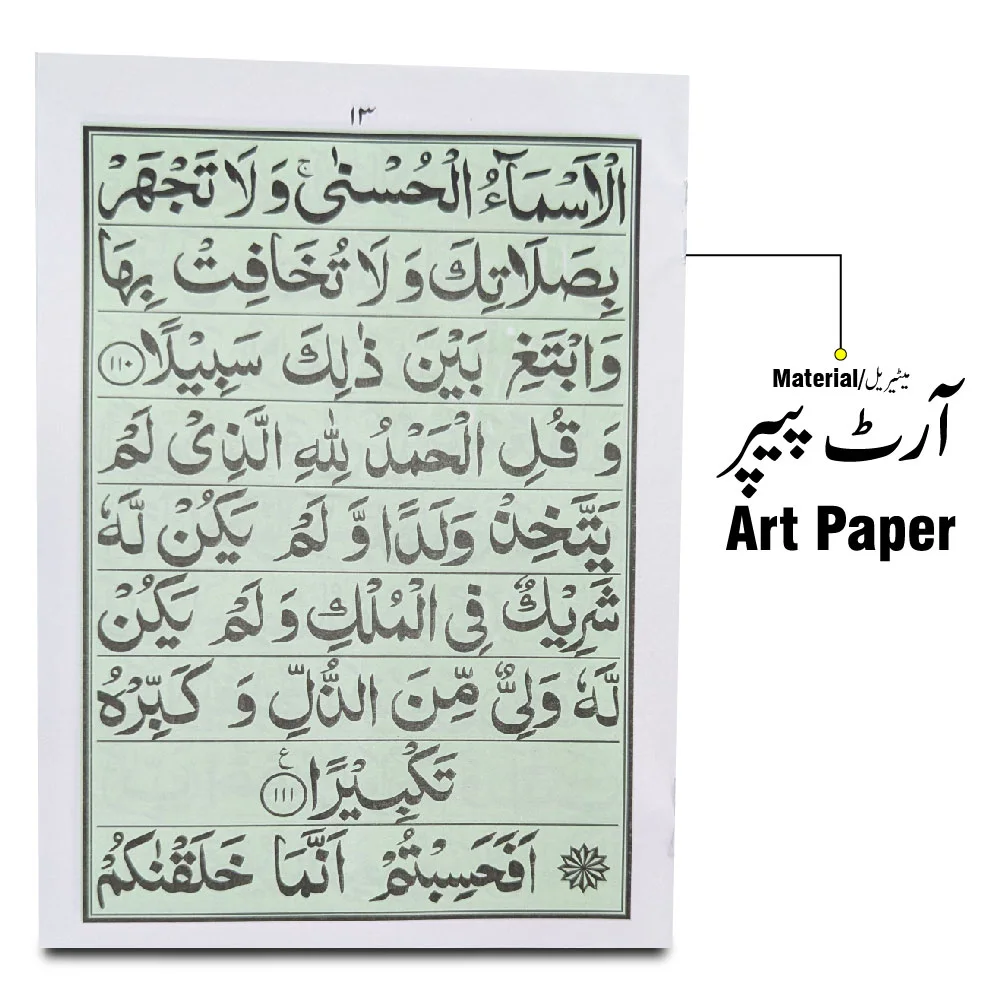 ١٣
الْاَسْمَآءُ الْحُسْنٰى ۚ وَ لَا تَجْهَرْ
بِصَلَاتِكَ وَ لَا تُخَافِتْ بِهَا
وَابْتَغِ بَيْنَ ذٰلِكَ سَبِيْلًا ﴿١١٠﴾
وَ قُلِ الْحَمْدُ لِلّٰهِ الَّذِىْ لَمْ
يَتَّخِذْ وَلَدًا وَّ لَمْ يَكُنْ لَّهٗ
شَرِيْكٌ فِى الْمُلْكِ وَ لَمْ يَكُنْ
لَّهٗ وَلِىٌّ مِّنَ الذُّلِّ وَ كَبِّرْهُ
تَكْبِيْرًا ﴿١١١﴾ ع
اَفَحَسِبْتُمْ اَنَّمَا خَلَقْنٰكُمْ
Material/میٹیریل
آرٹ پیپر
Art Paper